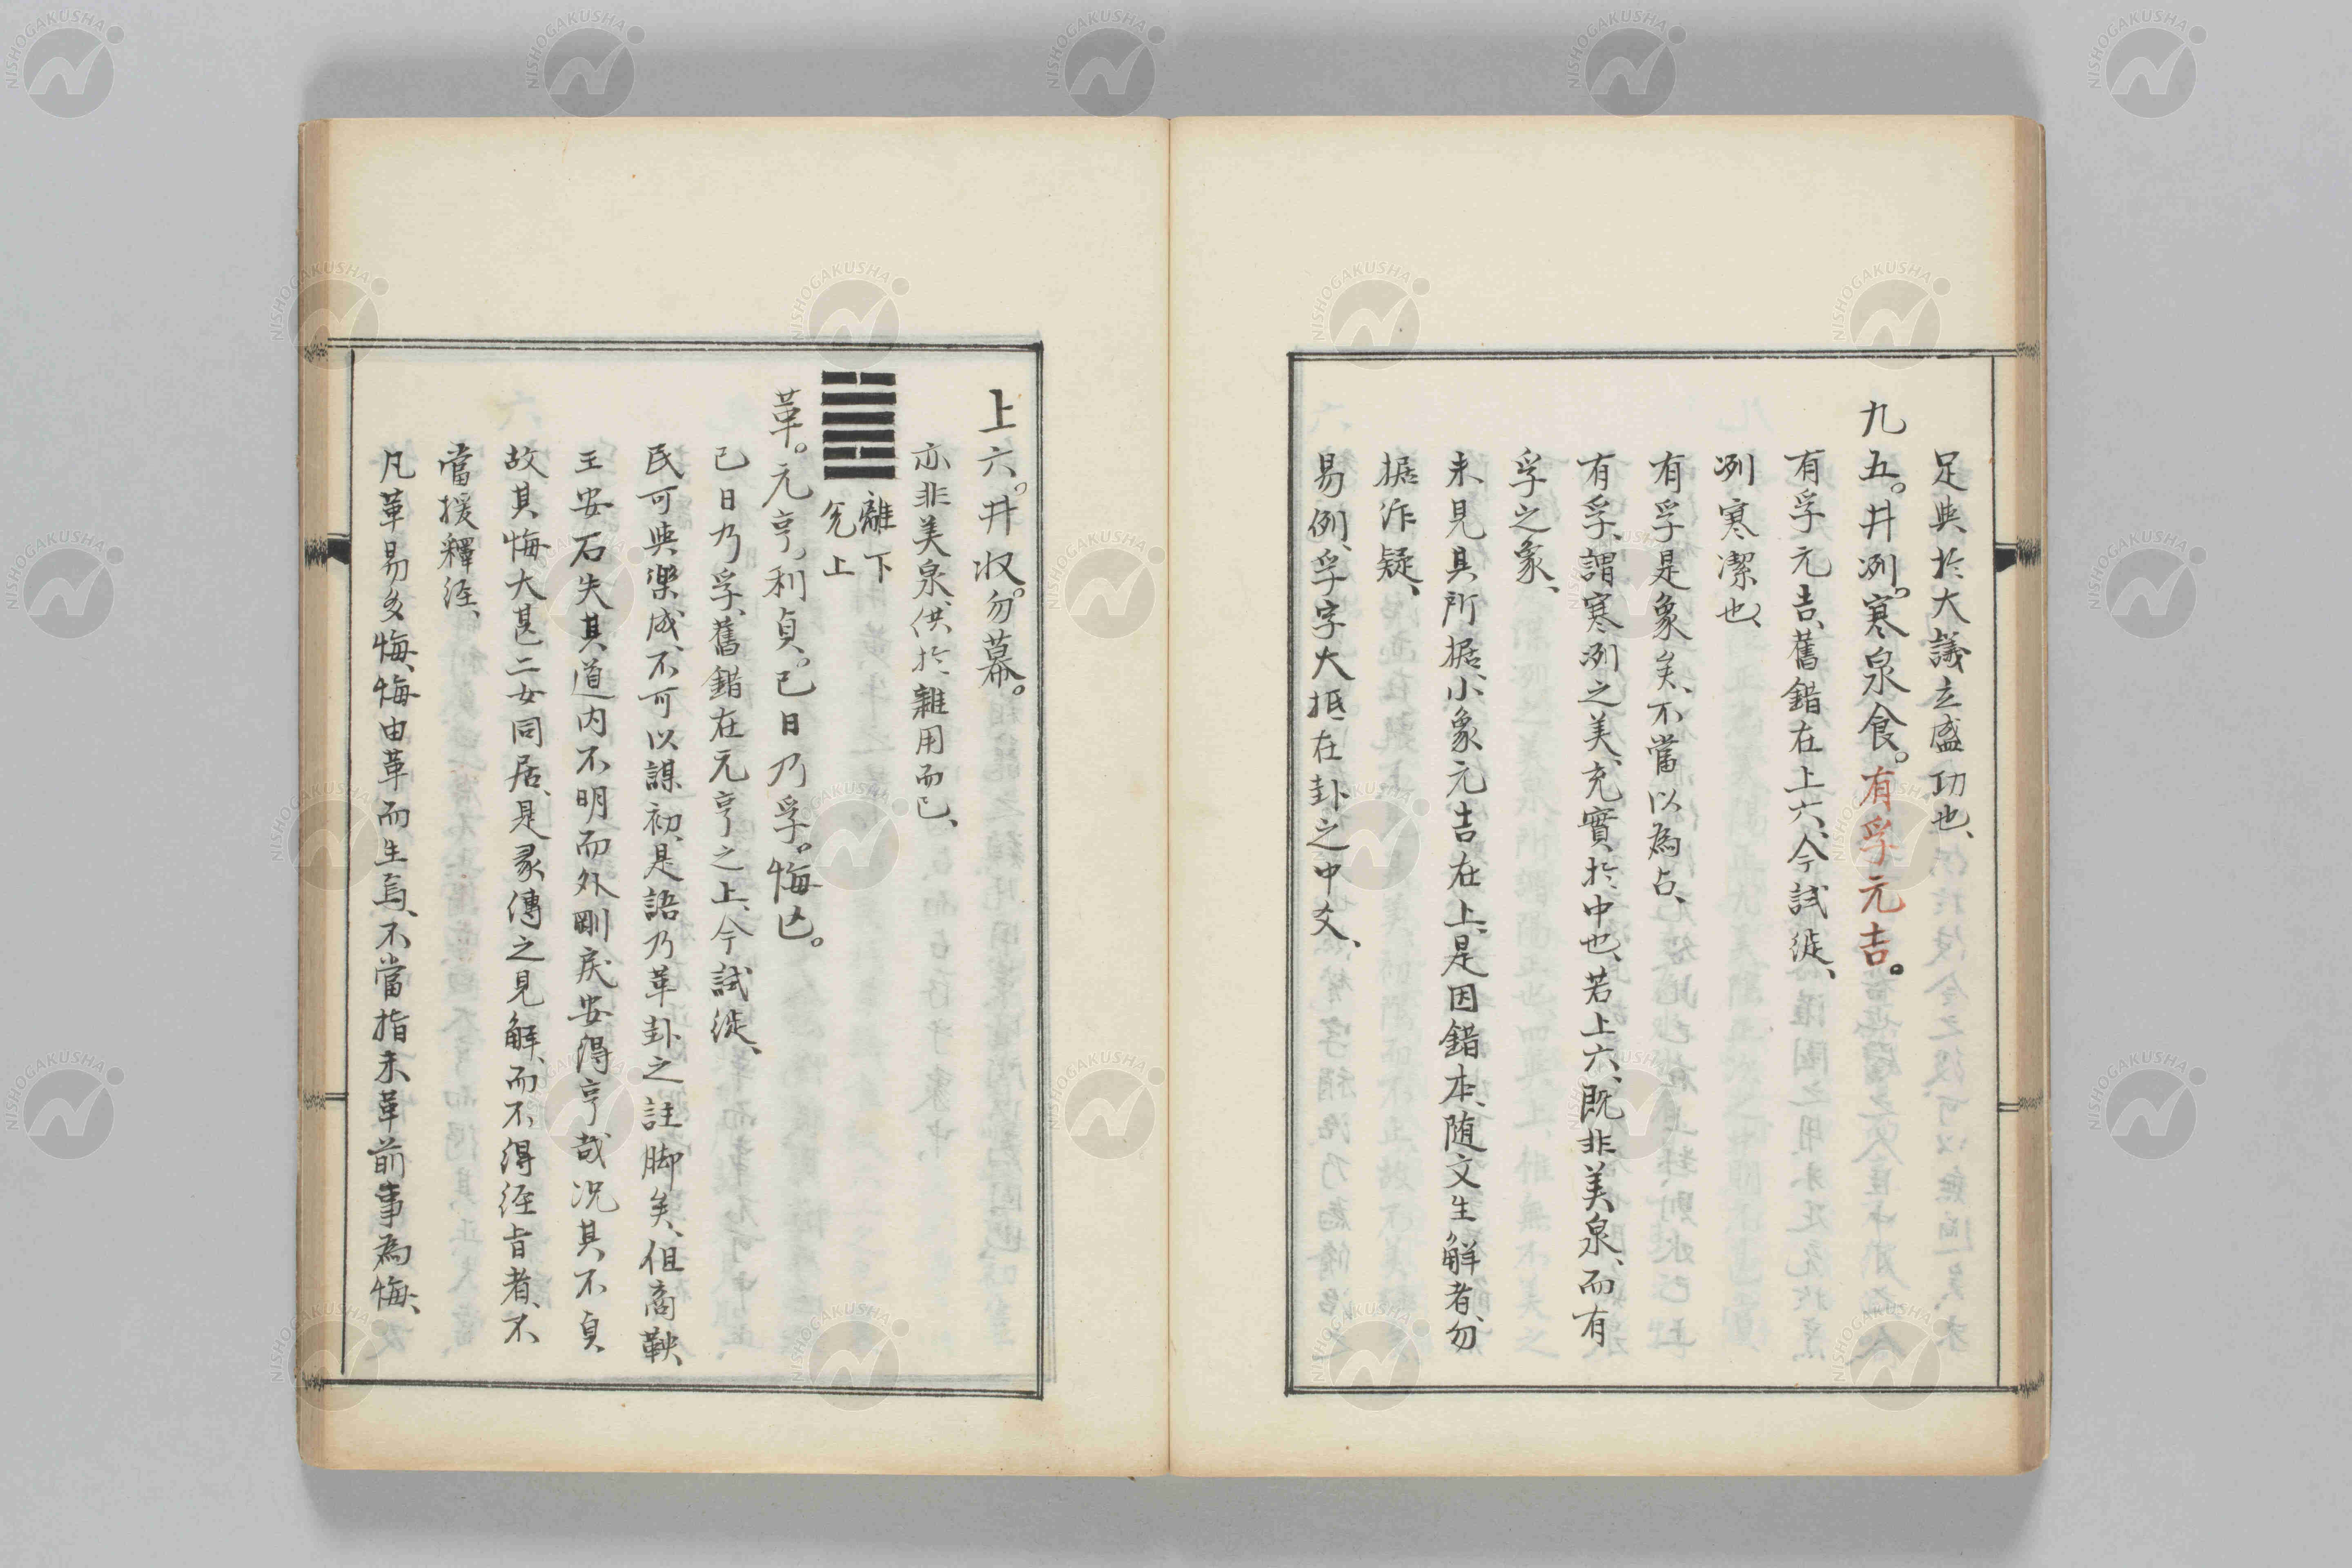 足與於大議立盛功也、
九五。井冽。寒泉食。有孚元吉。
有孚元吉、舊錯在上六、今試徙、
冽寒潔也、
有孚是象矣、不當以為占、
有孚、謂寒冽之美、充實於中也、若上六、既非美泉、而有
孚之象、
未見其所據、小象元吉在上、是因錯本、随文生解者、勿
据作疑、
易例、孚字大抵在卦之中爻、
上六。井收。勿幕。
亦非美泉、供於雜用而已、
離下
兌上
革。元亨、利貞。已日乃孚。悔亡。
已日乃孚、舊錯在元亨之上、今試徙、
民可與樂成、不可以謀初、是語乃革卦之註脚矣、但商鞅、
王安石失其道、内不明而外剛戾、安得亨哉、况其不貞、
故其悔大甚、二女同居、是彖傳之見解、而不得経旨者、不
當援釋経、
凡革易多悔、悔由革而生焉、不當指未革前事為悔、
NISHOGAKUSHA